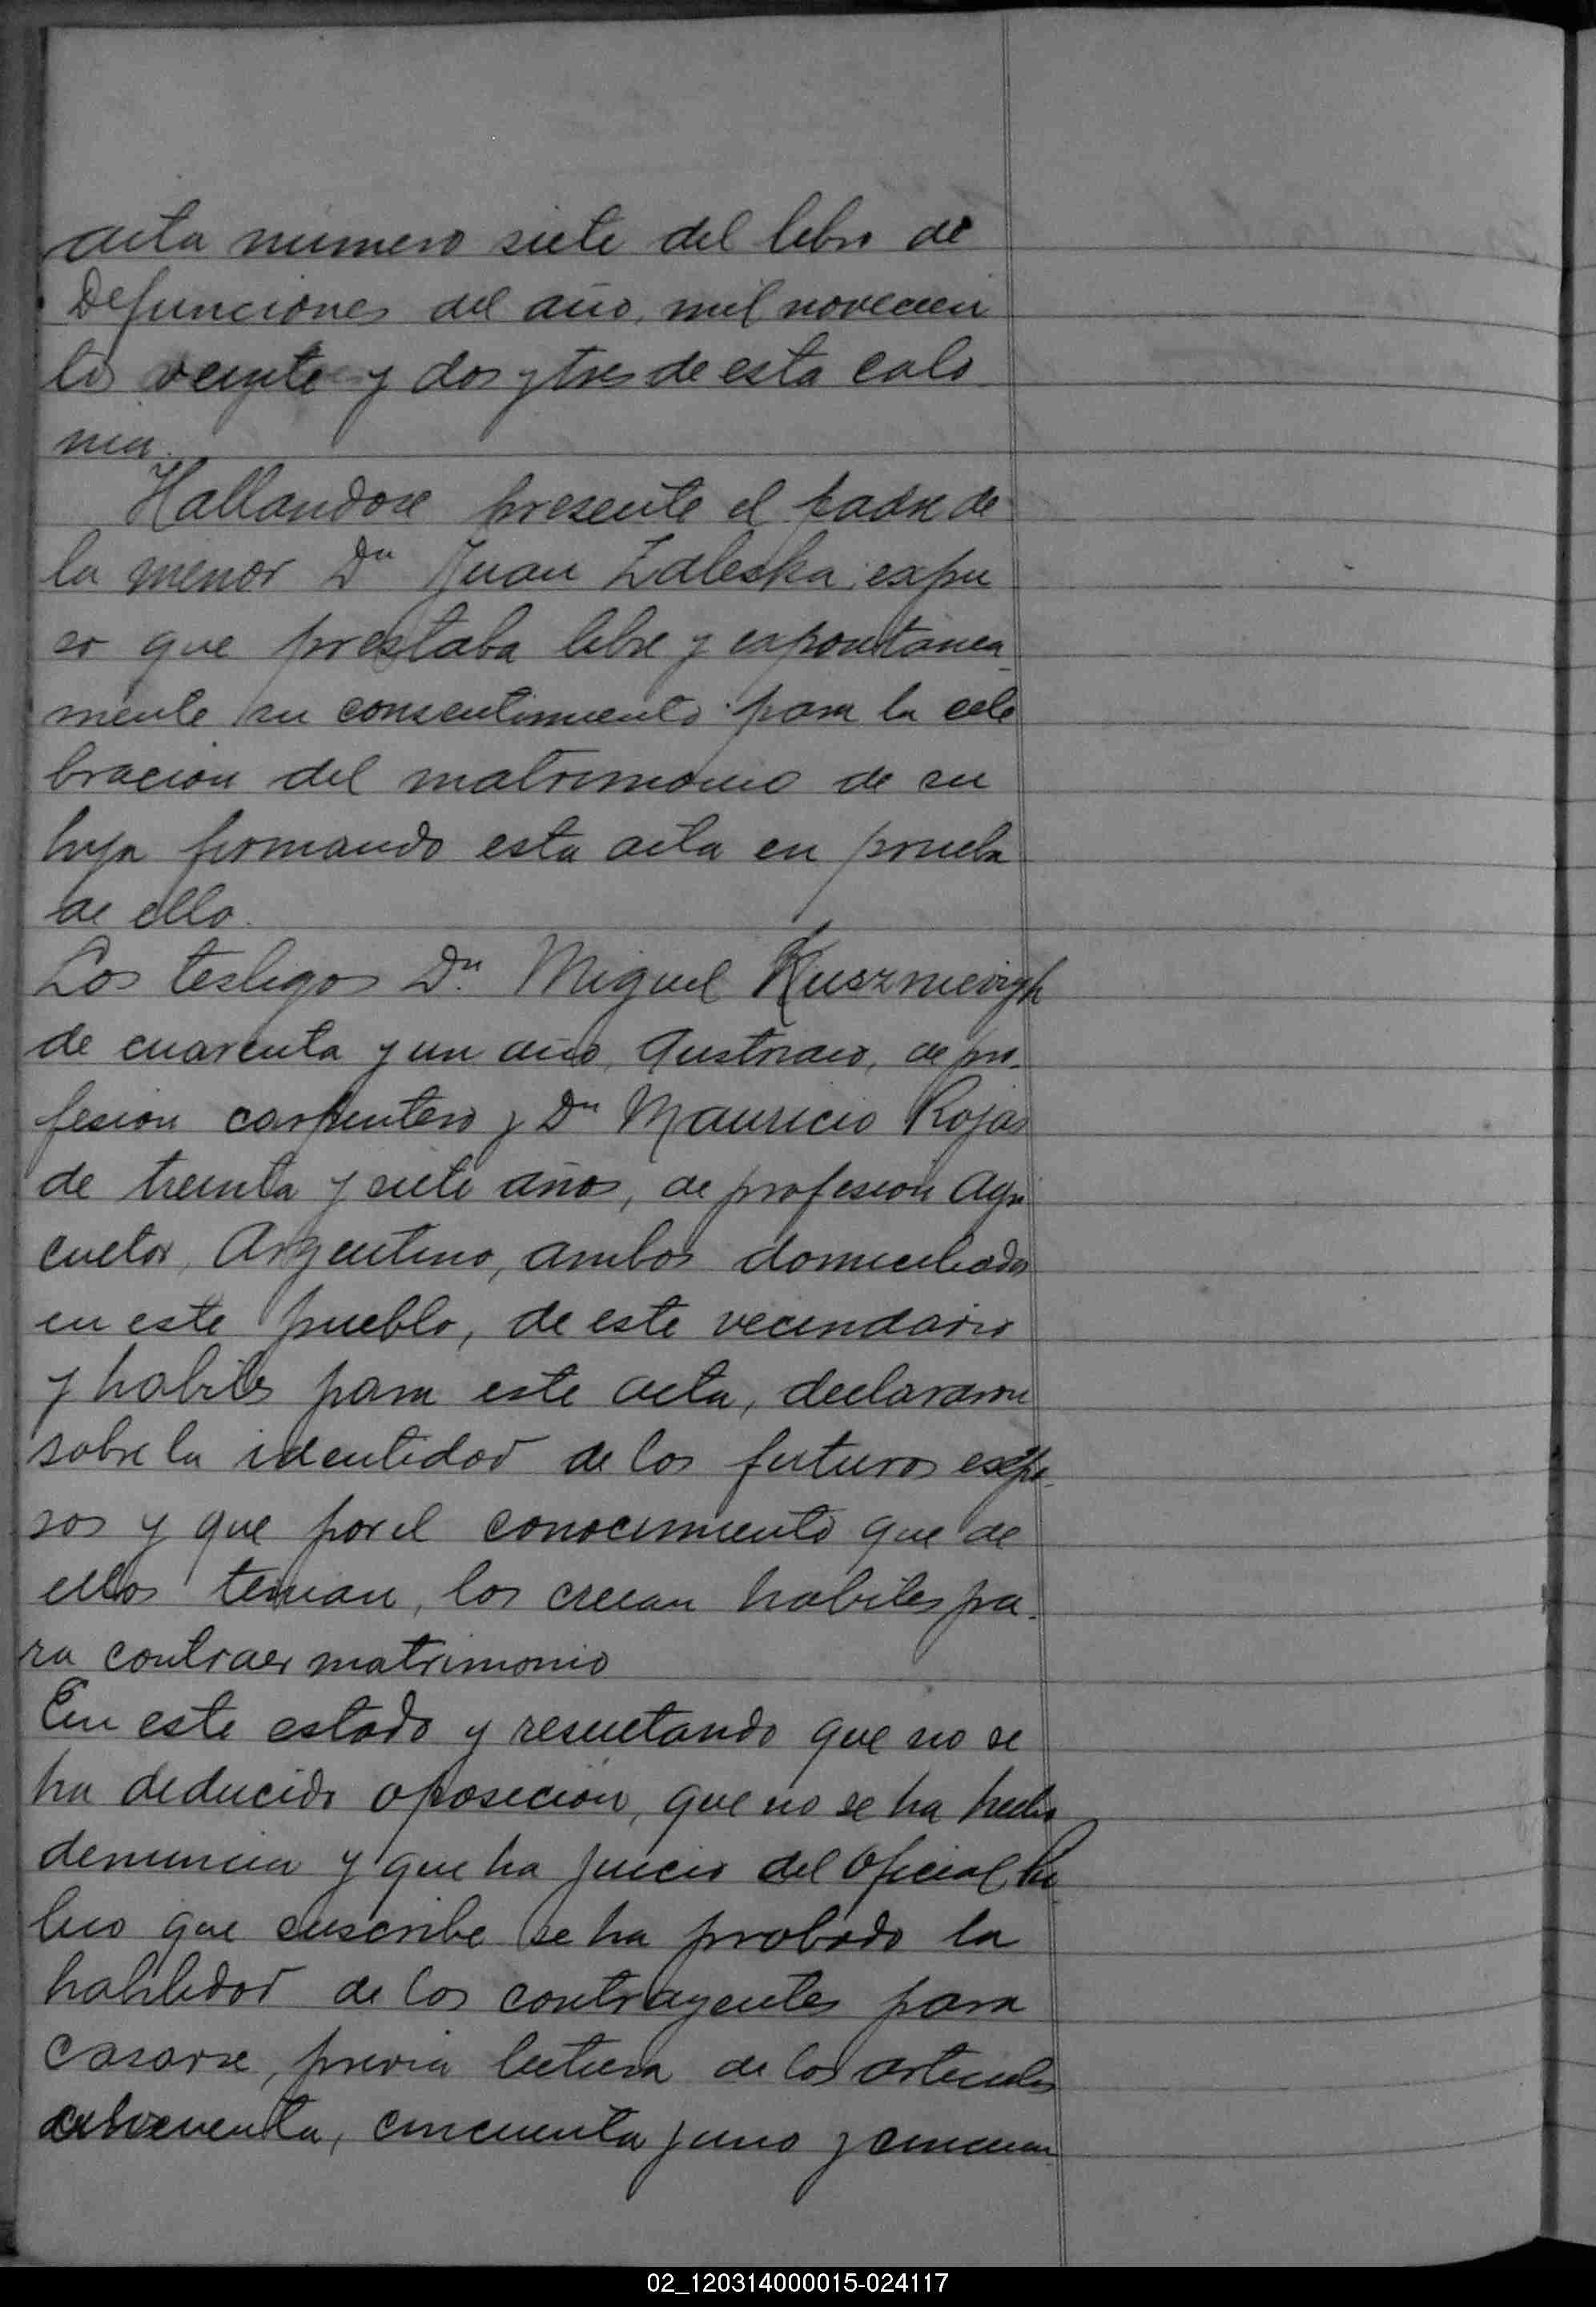 acta numero siete del libro de
Defunciones del año, mil novecien
tos veinte y dos y tres de esta colo
nia.
Hallandose presente el padre de
la menor Dn Juan Zaleska expu
so que prestaba libre y expontanea
mente su consentimiento para la cele
bracion del matrimonio de su
hija firmando esta acta en prueba
de ello.
Los testigos Dn. Miguel Kusznierigh
de cuarenta y un año, Austriaco, de pro-
fesion carpintero y Dn Mauricio Rojas
de treinta y siete años, de profesion Agri
cultor, Argentino, ambos domiciliados
en este pueblo, de este vecindario
y habiles para este acta, declararon
sobre la identidad de los futuros espo-
sos y que por el conocimiento que de
ellos tenian, los creian habiles pa-
ra contraer matrimonio
En este estado y resultando que no se
ha deducido oposicion, que no se ha hecho
denuncia y que ha juicio del Oficial Pu
blico que suscribe se ha probado la
habilidad de los contrayentes para
casarse, previa lectura de los articulos
cincuenta, cincuenta y uno y cincuen
02_120314000015-024117